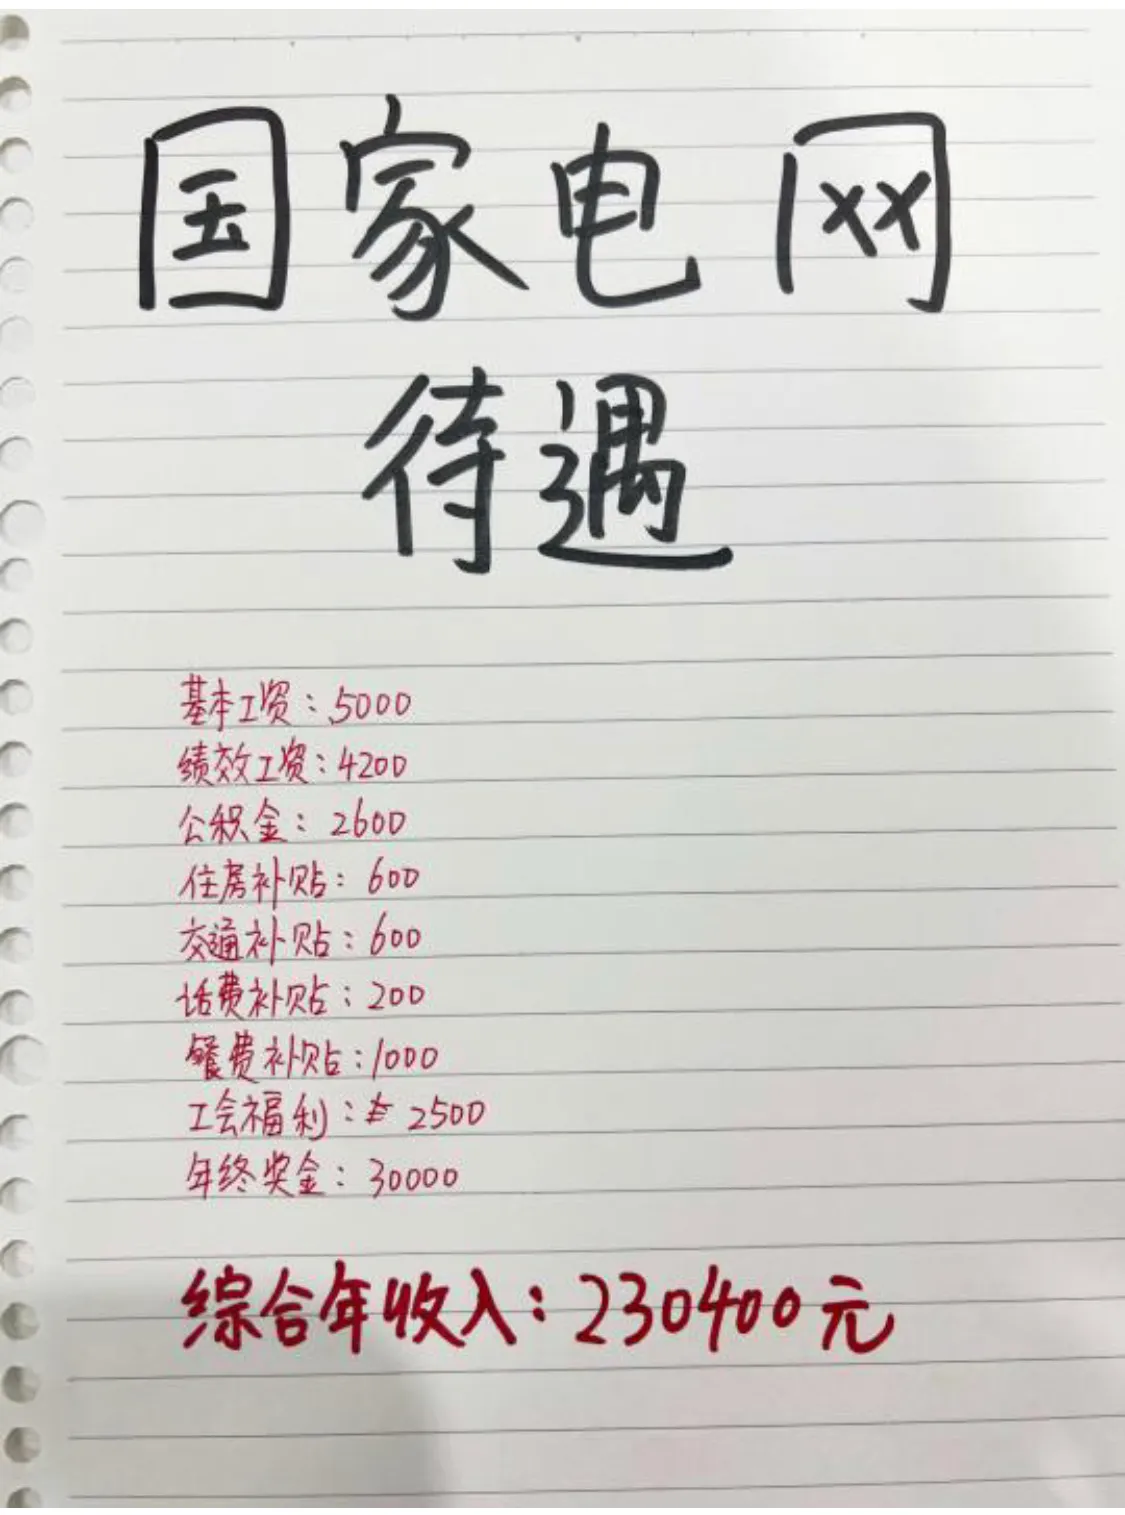 国家电网
待遇
基本工资：5000
绩效工资：4200
公积金：2600
住房补贴：600
交通补贴：600
话费补贴：200
餐费补贴：1000
工会福利： 2500
年终奖金：30000
综合年收入：230400元